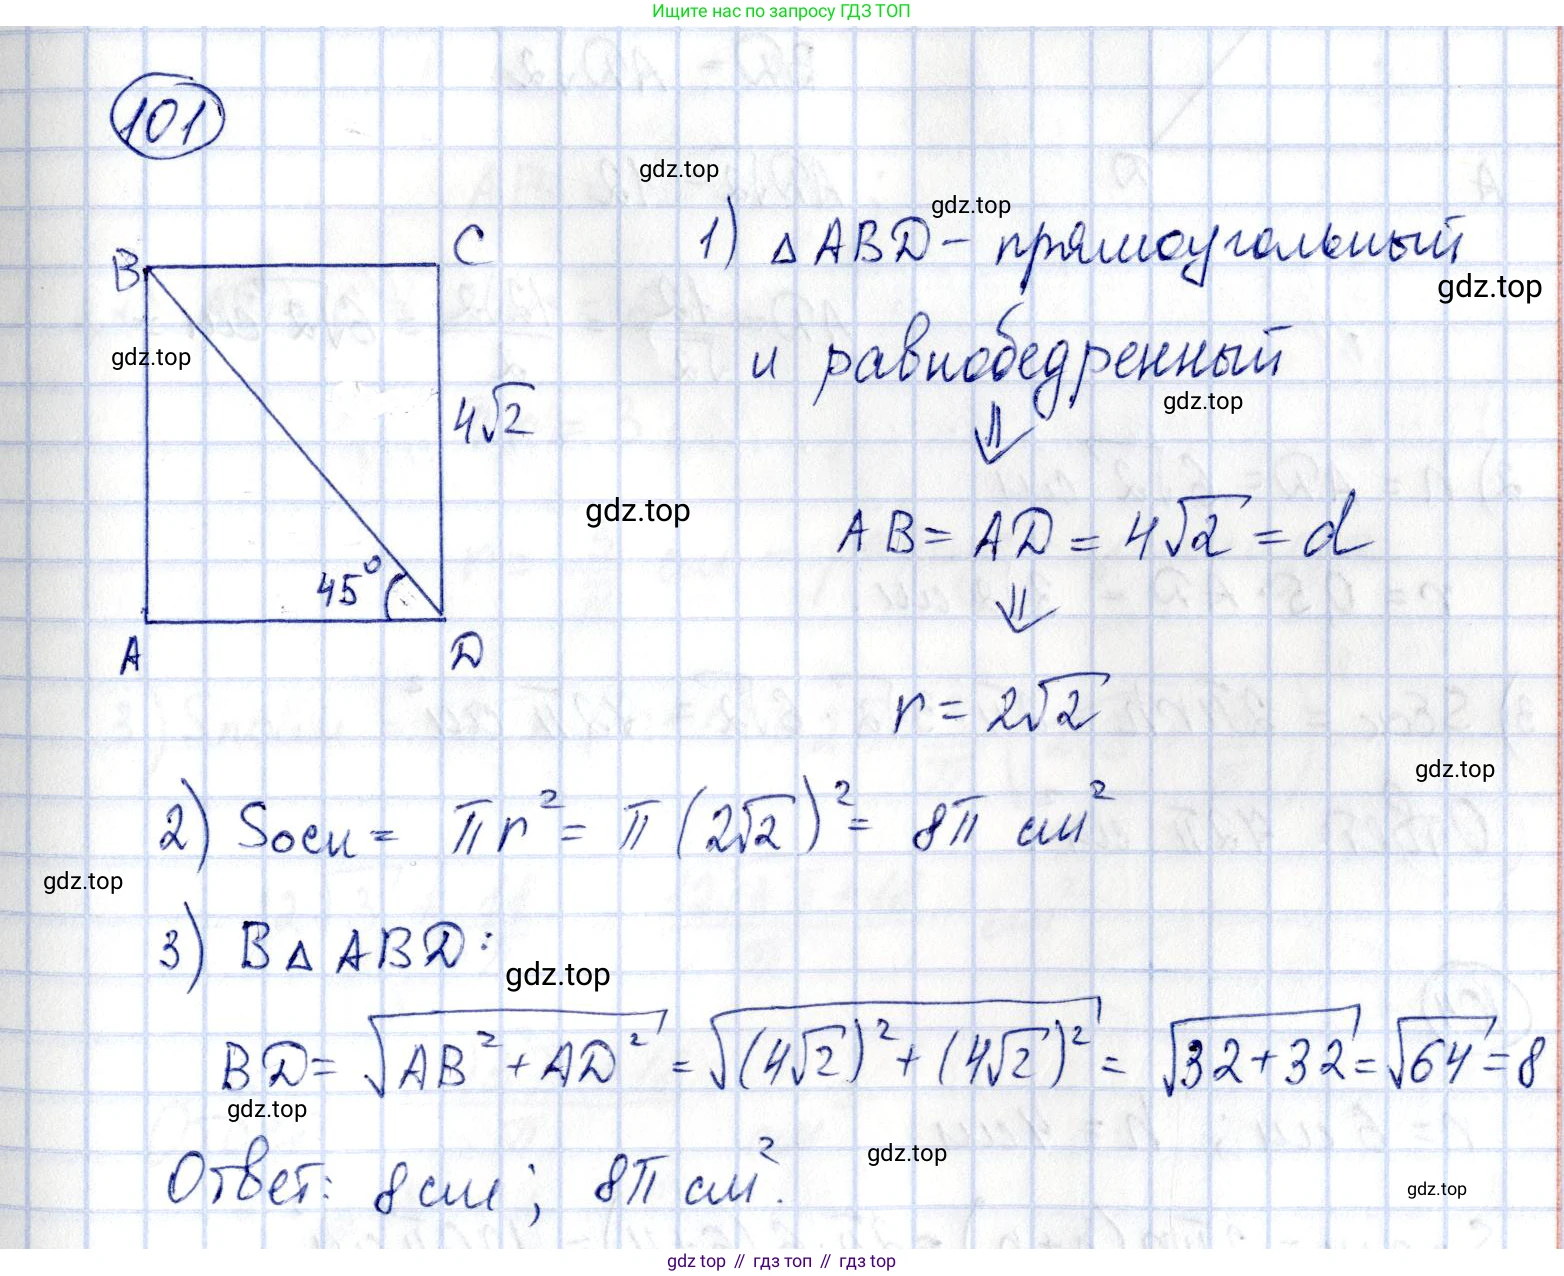 Ищите нас по запросу ГДЗ ТОП
101
gdz.top
gdz.top
B
C
1) △ ABD – прямоугольный
gdz.top
gdz.top
и равнобедренный
gdz.top
⇓
4√2
gdz.top
AB = AD = 4√2 = d
⇓
45°
A
D
r = 2√2
gdz.top
2) Sосн = πr² = π(2√2)² = 8π см²
gdz.top
3) В △ ABD:
gdz.top
BD = √(AB² + AD²) = √((4√2)² + (4√2)²) = √(32+32) = √64 = 8
gdz.top
Ответ: 8 см; 8π см².
gdz.top
gdz.top
gdz top // гдз топ // гдз top